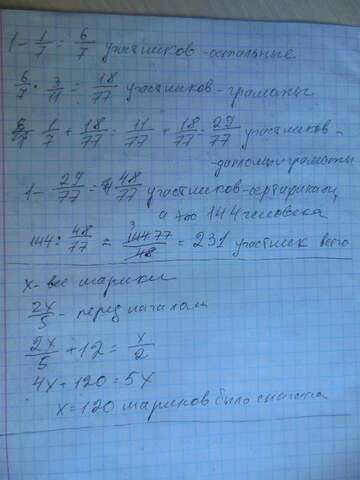 1 - 1/7 = 6/7 участников - остальные
6/7 · 3/11 = 18/77 участников - грамоты
1/7 + 18/77 = 11/77 + 18/77 = 29/77 участников -
- дипломы и грамоты
1 - 29/77 = 48/77 участников - сертификаты,
а это 144 человека
144 : 48/77 = 144·77/48 = 231 участник всего
x - все шарики
2x/5 - перед началом
2x/5 + 12 = x/2
4x + 120 = 5x
x = 120 шариков было сначала